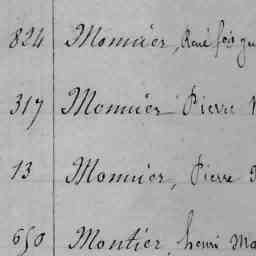 824 Monnier, René fois
317 Monnier Pierre
13 Monnier, Pierre
650 Montier, henri